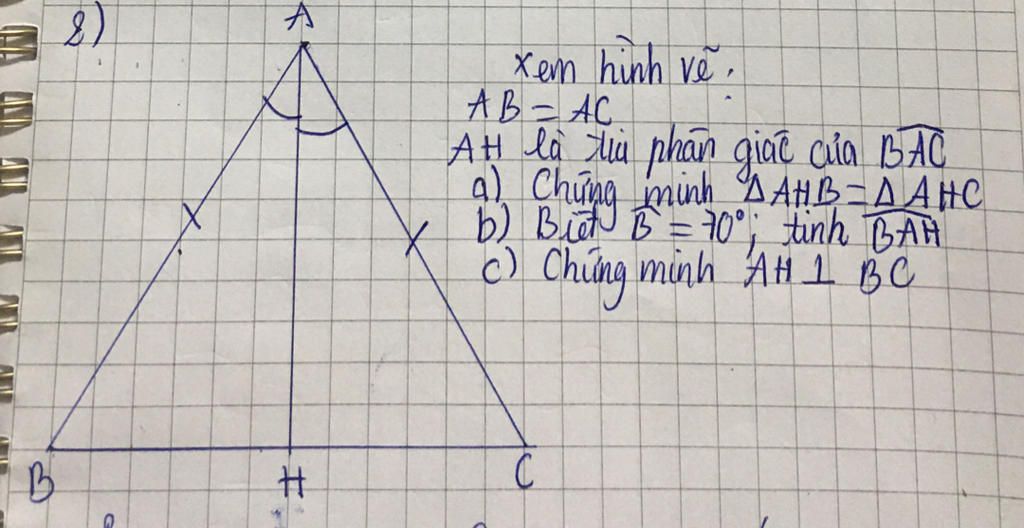 8)
A
xem hình vẽ.
AB = AC
AH là tia phân giác của BAC
a) Chứng minh ΔAHB = ΔAHC
b) Biết B = 70°; tính BAH
c) Chứng minh AH ⊥ BC
B H C